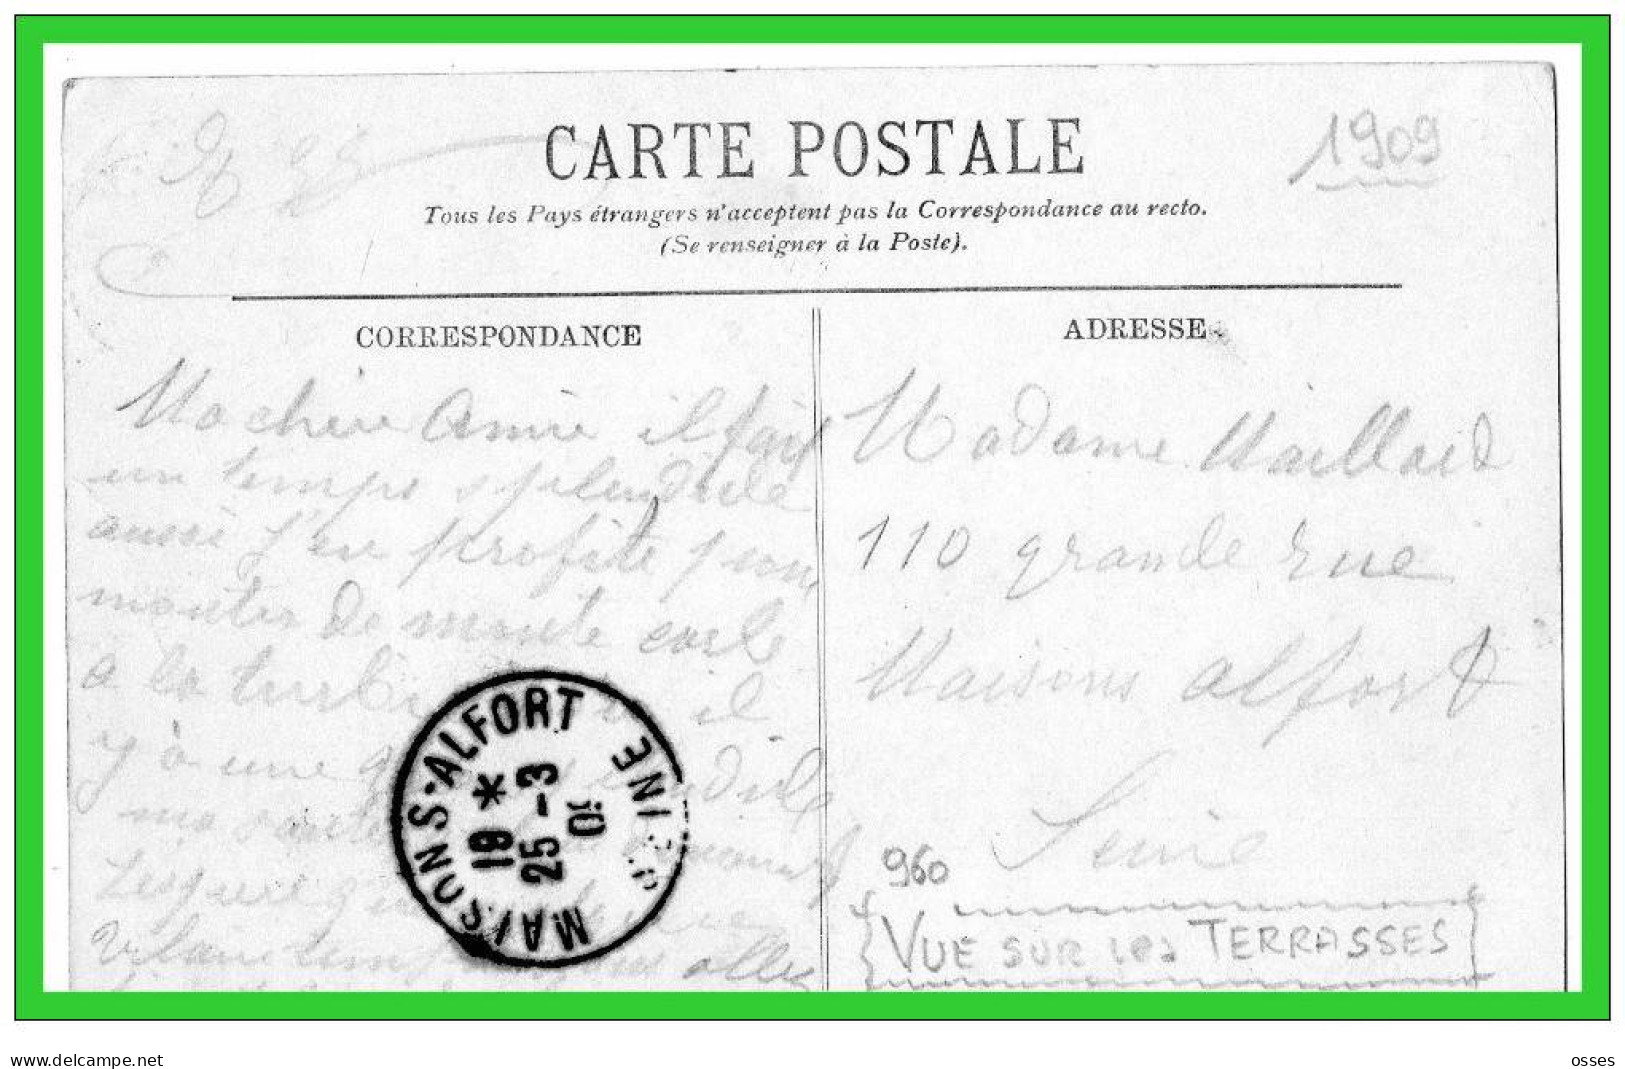 1909
CARTE POSTALE
Tous les Pays étrangers n'acceptent pas la Correspondance au recto.
(Se renseigner à la Poste).
CORRESPONDANCE
Ma chère Amie il fait
un temps splendide
aussi j'en profite pour
monter de monte carle
a la turbie il
y à une
ma santé
MAISONS-ALFORT
SEINE
19 *
25 -3
10
ADRESSE
Madame Maillard
110 grande rue
Maisons alfort
Seine
960
VUE SUR les TERRASSES
www.delcampe.net
osses